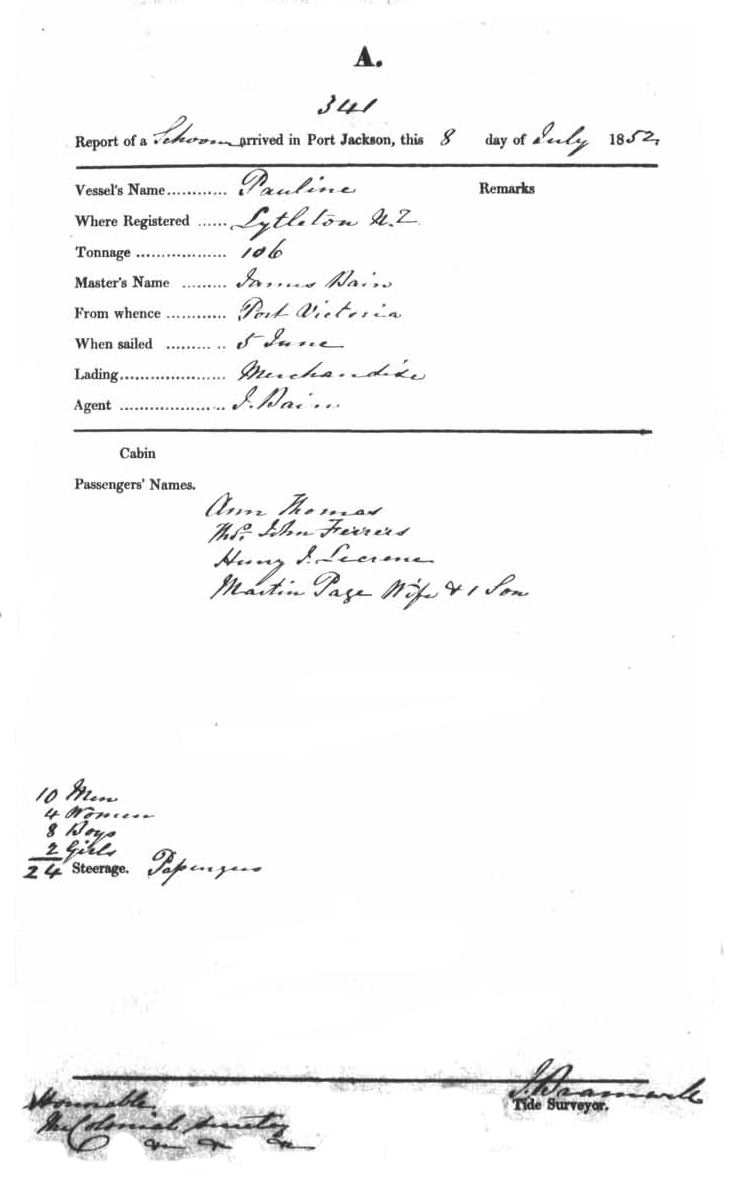 A.
341
Report of a Schooner arrived in Port Jackson, this 8 day of July 1852,
Vessel's Name............ Pauline Remarks
Where Registered ...... Lytleton N.Z.
Tonnage .................. 106
Master's Name ......... James Bain
From whence ............ Port Victoria
When sailed ......... .. 5 June
Lading..................... Merchandise
Agent ..................... J. Bain
Cabin
Passengers' Names.
Ann Thomas
John Ferrers
Henry J.
Martin Page Wife & 1 Son
10 Men
4 Women
8 Boys
2 Girls
24 Steerage. Passengers
J. Bramwell
Tide Surveyor.
Honorable
The Colonial Secretary
&c &c &c